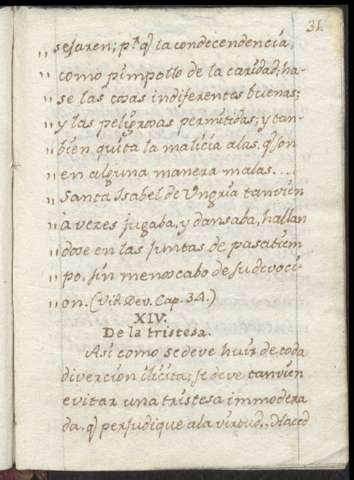 31.
,, sejaren; pª q̃ la condecendencia,
,, como pimpollo de la caridad, ha-
,, se las cosas indiferentes buenas;
,, y las peligrosas permitidas; y tan-
,, bien quita la malicia alas q̃ son
,, en alguna manera malas....
,, Santa Isabel de Ungria tanvien
,, à vezes jugaba, y dansaba, hallan
,, dose en las juntas de pasatiem
,, po, sin menoscabo de su devoci-
,, on. (Vid. Dev. Cap. 34.)
XIV.
De la tristesa.
Asi como se deve huir de toda
divercion ilicita; se deve tanvien
evitar una tristesa immodera
da, q̃ perjudique ala virtud.